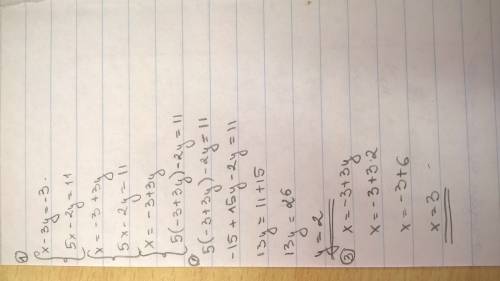 ① { x-3y=-3.
5x-2y=11
{ x=-3+3y
5x-2y=11
{ x=-3+3y
5(-3+3y)-2y=11
② 5(-3+3y)-2y=11
-15+15y-2y=11
13y=11+15
13y=26
y=2
③ x=-3+3y
x=-3+3·2
x=-3+6
x=3.